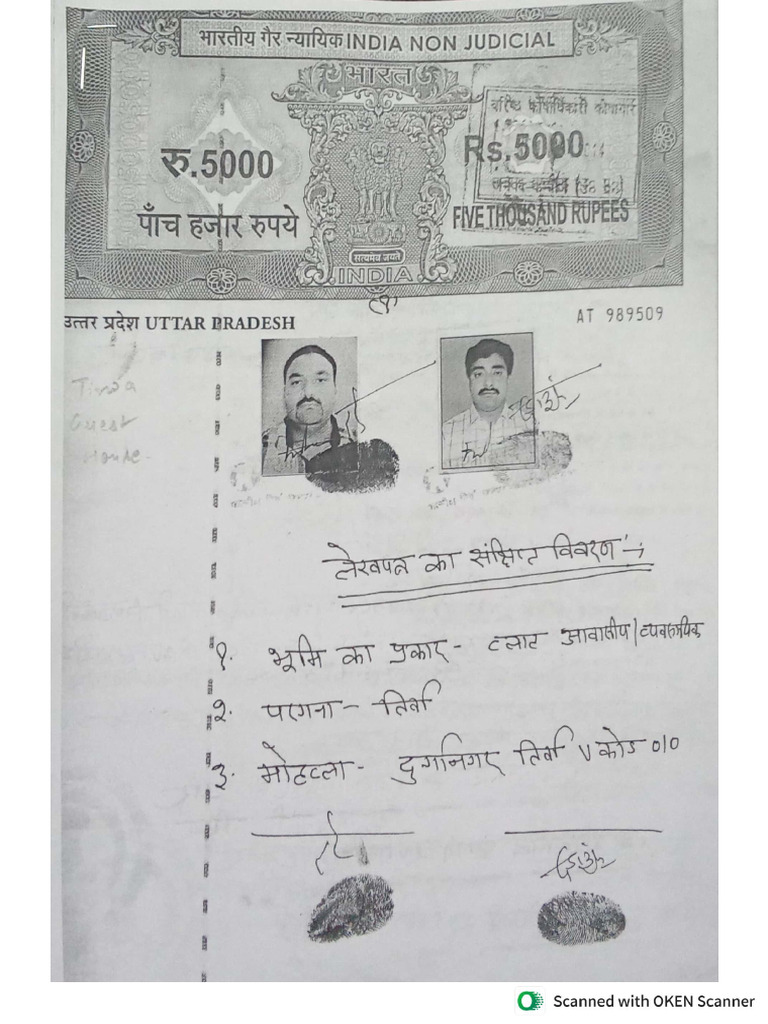 भारतीय गैर न्यायिक INDIA NON JUDICIAL
भारत
वरिष्ठ कोषाधिकारी कोषागार
रु.5000
Rs.5000
पाँच हजार रुपये
FIVE THOUSAND RUPEES
सत्यमेव जयते
INDIA
(१)
उत्तर प्रदेश UTTAR PRADESH
AT 989509
Tirwa
Guest
House
लेखपत्र का संक्षिप्त विवरण :-
१. भूमि का प्रकार - प्लाट आवासीय/व्यवसायिक
२. परगना - तिर्वा
३. मोहल्ला - दुर्गानगर तिर्वा V कोड 010
Scanned with OKEN Scanner